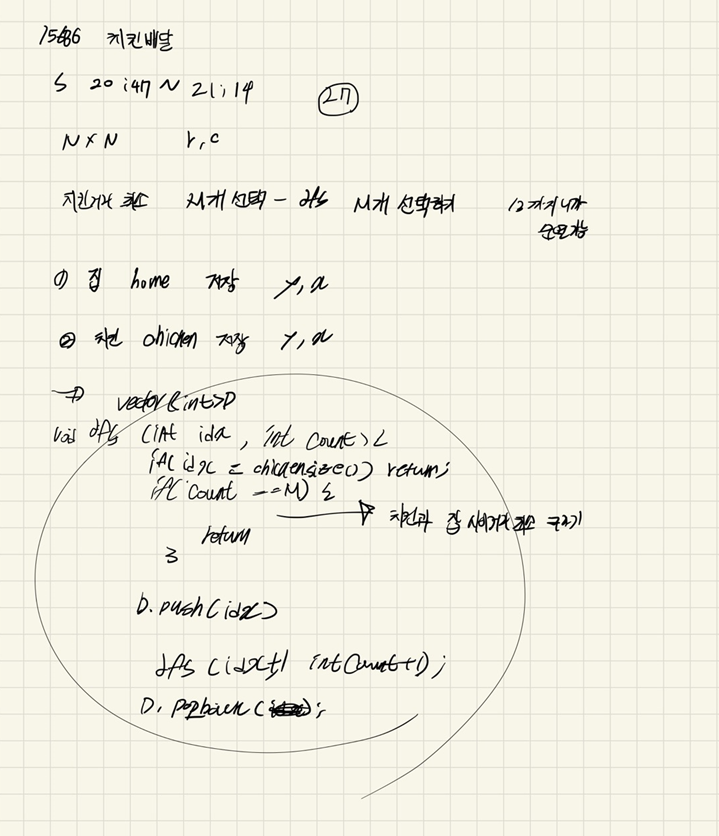 15686 치킨배달
S 20:47 ~ 21:14 27
N x N r, c
치킨거리 최소 M개 선택 - dfs M개 선택하기 12까지니까
① 집 home 저장 y, x
② 치킨 chicken 저장 y, x
→ vector<int> D
void dfs (int idx, int count) {
if( idx = chicken.size()) return;
if( count == M) {
→ 치킨과 집 사이거리 최소 구하기
return
}
D.push(idx)
dfs (idx+1 int count+1);
D.popback( );